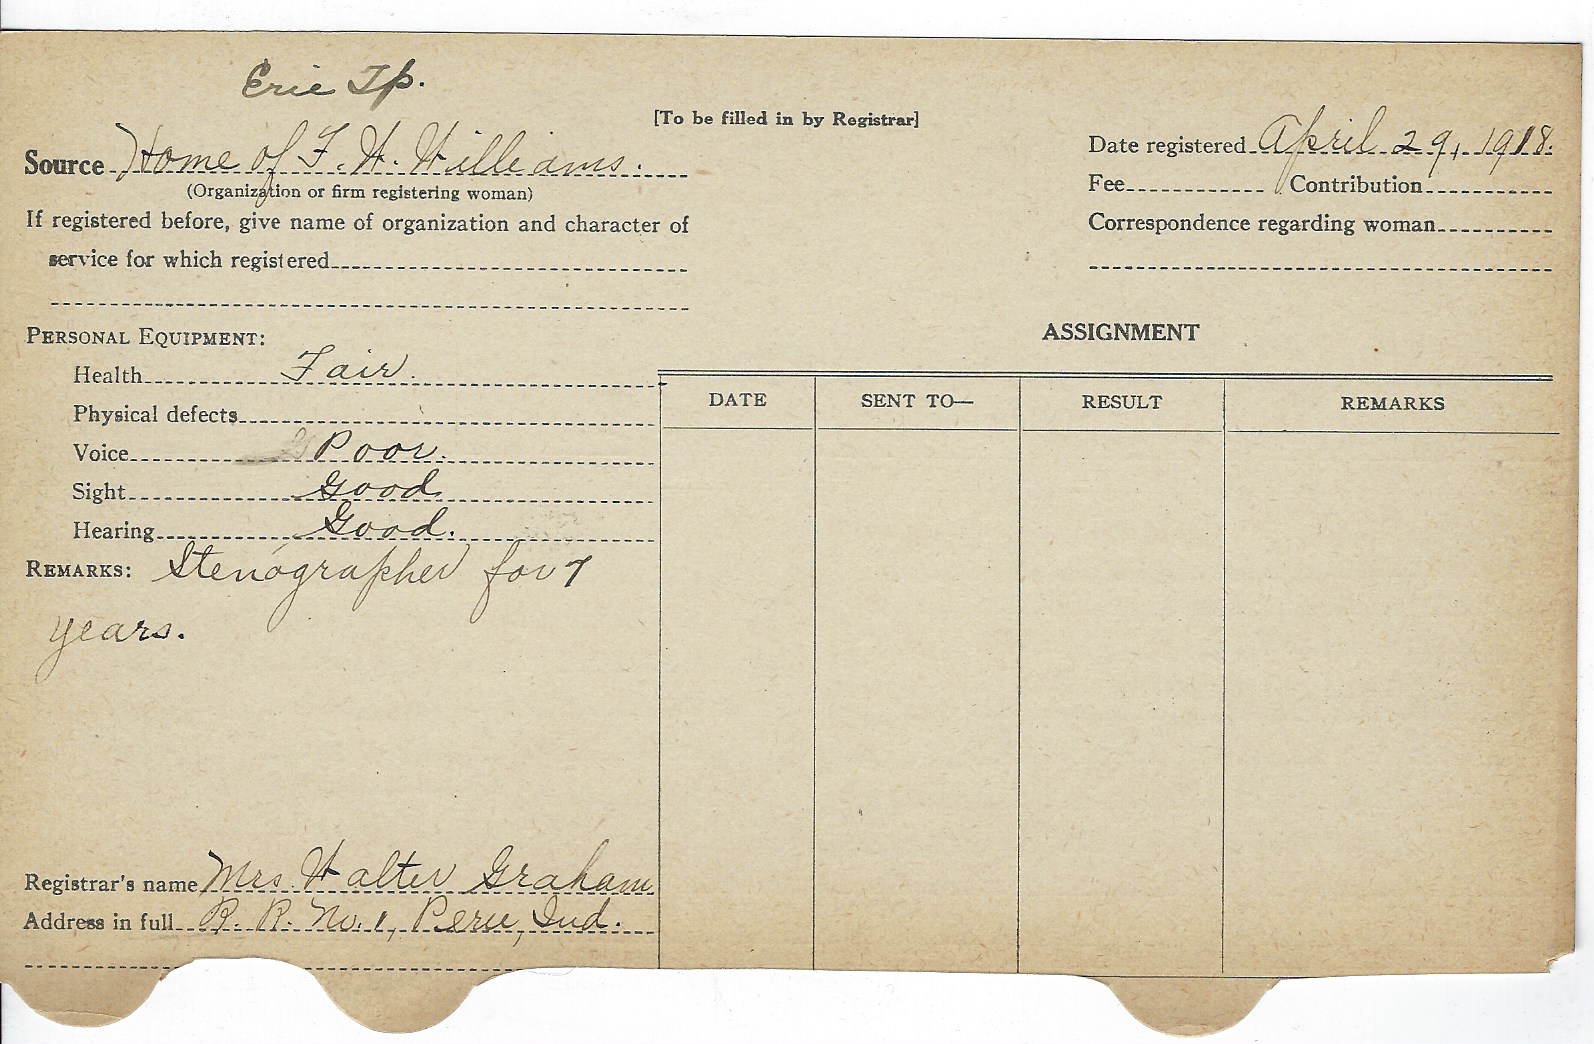 Erie Tp.
[To be filled in by Registrar]
Source Home of F. W. Williams.
(Organization or firm registering woman)
If registered before, give name of organization and character of
service for which registered
Date registered April 29, 1918.
Fee Contribution
Correspondence regarding woman
PERSONAL EQUIPMENT:
Health Fair.
Physical defects
Voice Poor.
Sight Good
Hearing Good.
REMARKS: Stenographer for 7
years.
Registrar's name Mrs. Walter Graham
Address in full R. R. No. 1, Peru, Ind.
ASSIGNMENT
DATE SENT TO— RESULT REMARKS